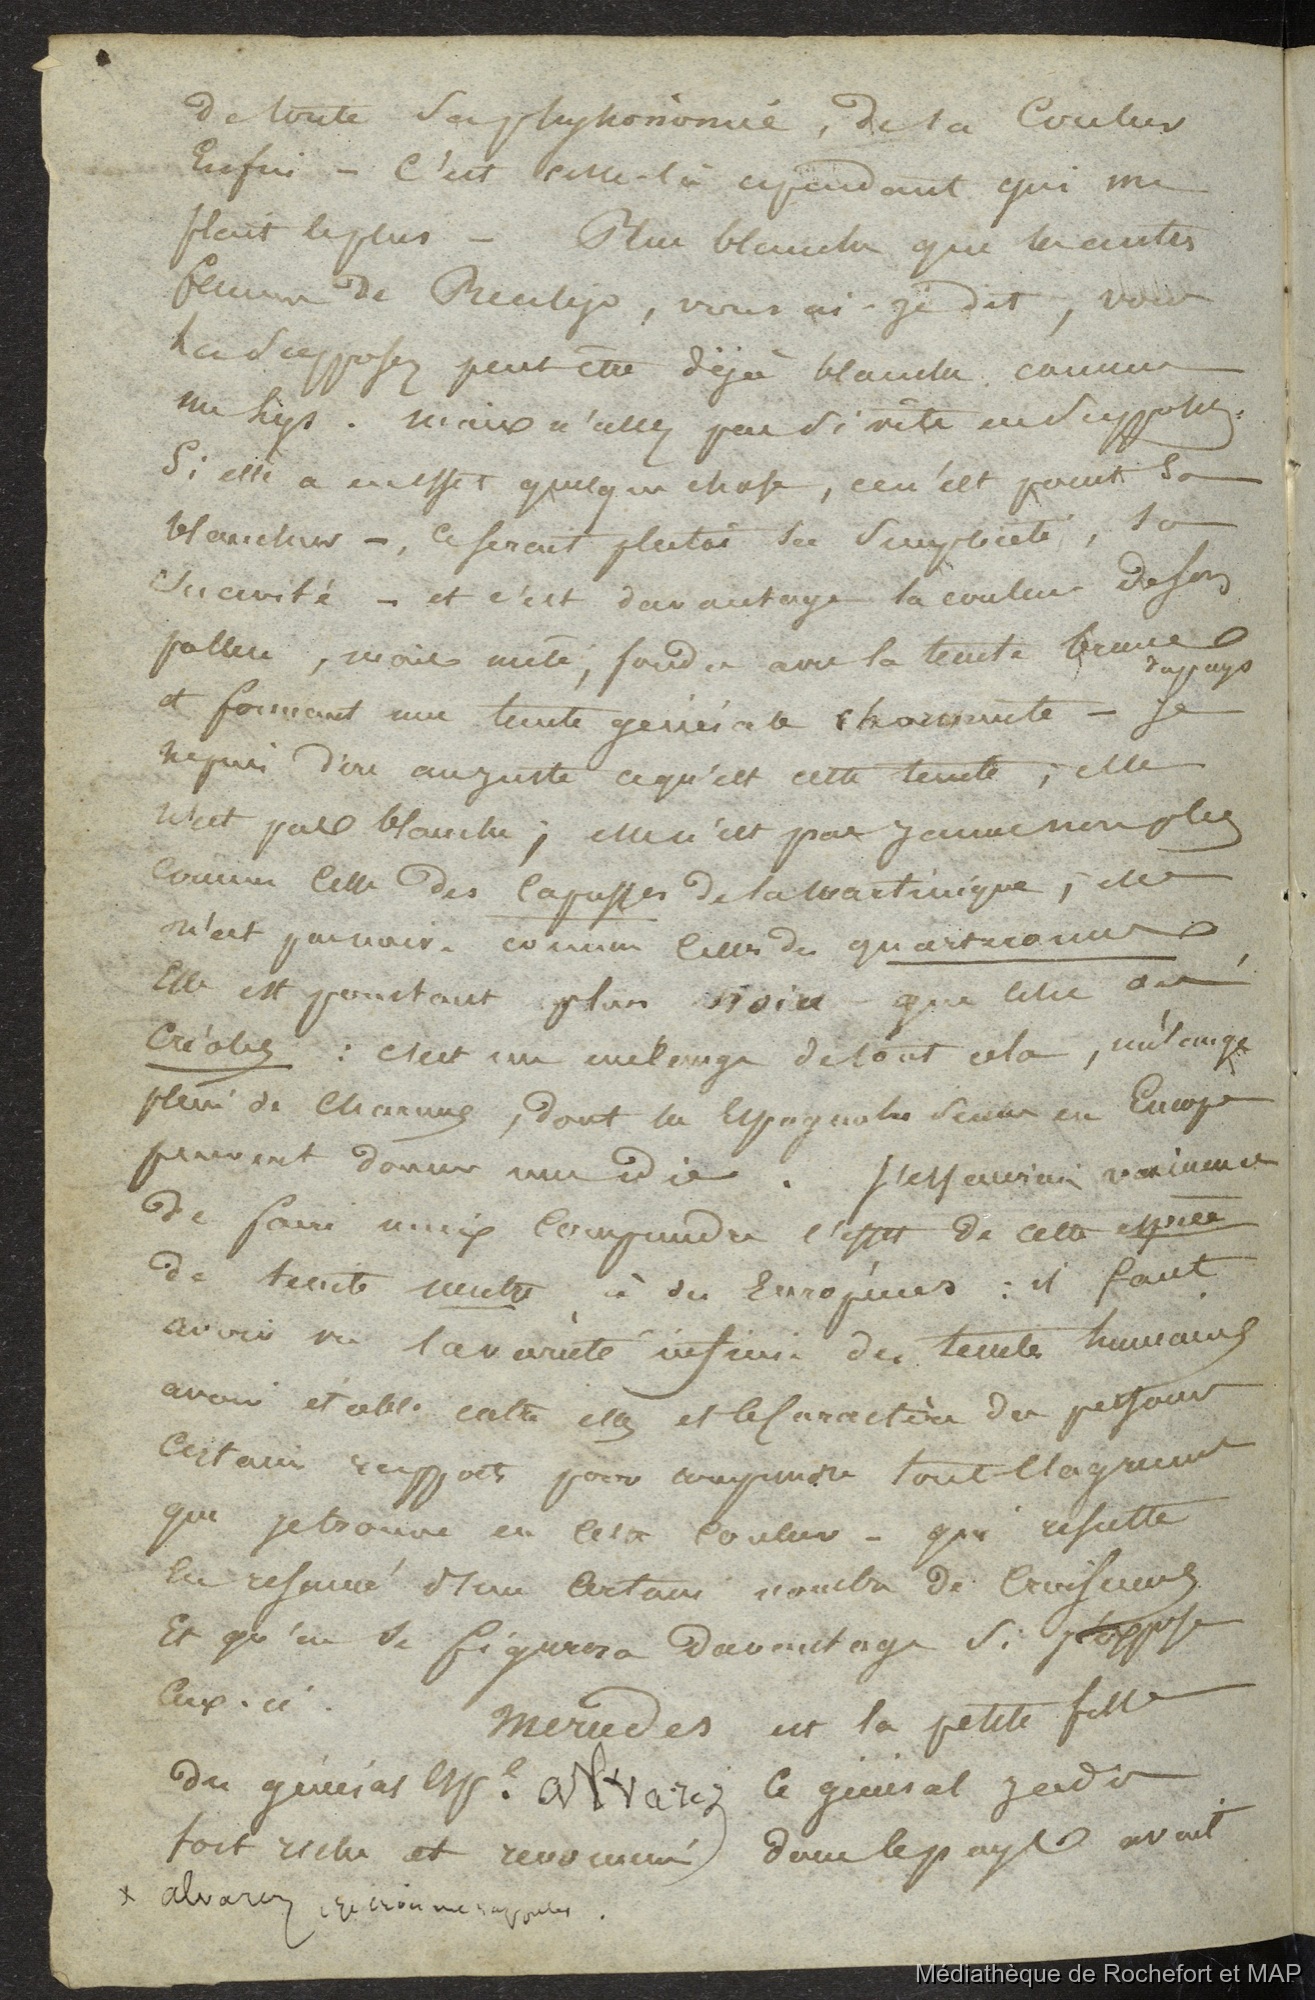 de toute sa physionomie, de la Couleur
Enfin - C'est celle-là cependant qui me
plait le plus - Plus blanche que les autres
femmes de Realejo, vous ai-je dit, vous
la supposez peut être déjà blanche comme
un lys. mais n'allez pas si vite en supposer.
Si elle a en effet quelque chose, ce n'est point sa
blancheur -, ce serait plutôt sa simplicité, sa
suavité - et c'est davantage la couleur de son
, mais fondue avec la teinte brune
du pays
et formant une teinte générale charmante - je
ne puis dire au juste ce qu'est cette teinte ; elle
n'est pas blanche ; elle n'est pas jaune non plus
comme celle des Capresses de la Martinique ; elle
n'est pas noire comme celle des quarteronnes
Elle est pourtant plus noire que celle des
Créoles : c'est un mélange de tout cela, mélange
plein de charmes, dont les Espagnoles seules en Europe
peuvent donner une idée. J'essaierais vainement
de faire mieux comprendre l'effet de cette espèce
de teinte neutre à des Européens : il faut
avoir vu la variété infinie des teintes humaines
avoir établi entre elles et le caractère des personnes
certains rapports pour comprendre tout l'agrément
que je trouve en cette couleur - qui résulte
en résumé d'un certain nombre de croisements
Et qu'on se figurera davantage si j'oppose
ceux-ci.
Mercedes est la petite fille
du général Espl. alvarez Ce général jadis
fort riche et renommé dans le pays avait
x alvarez, si je crois me rappeler.
Médiathèque de Rochefort et MAP